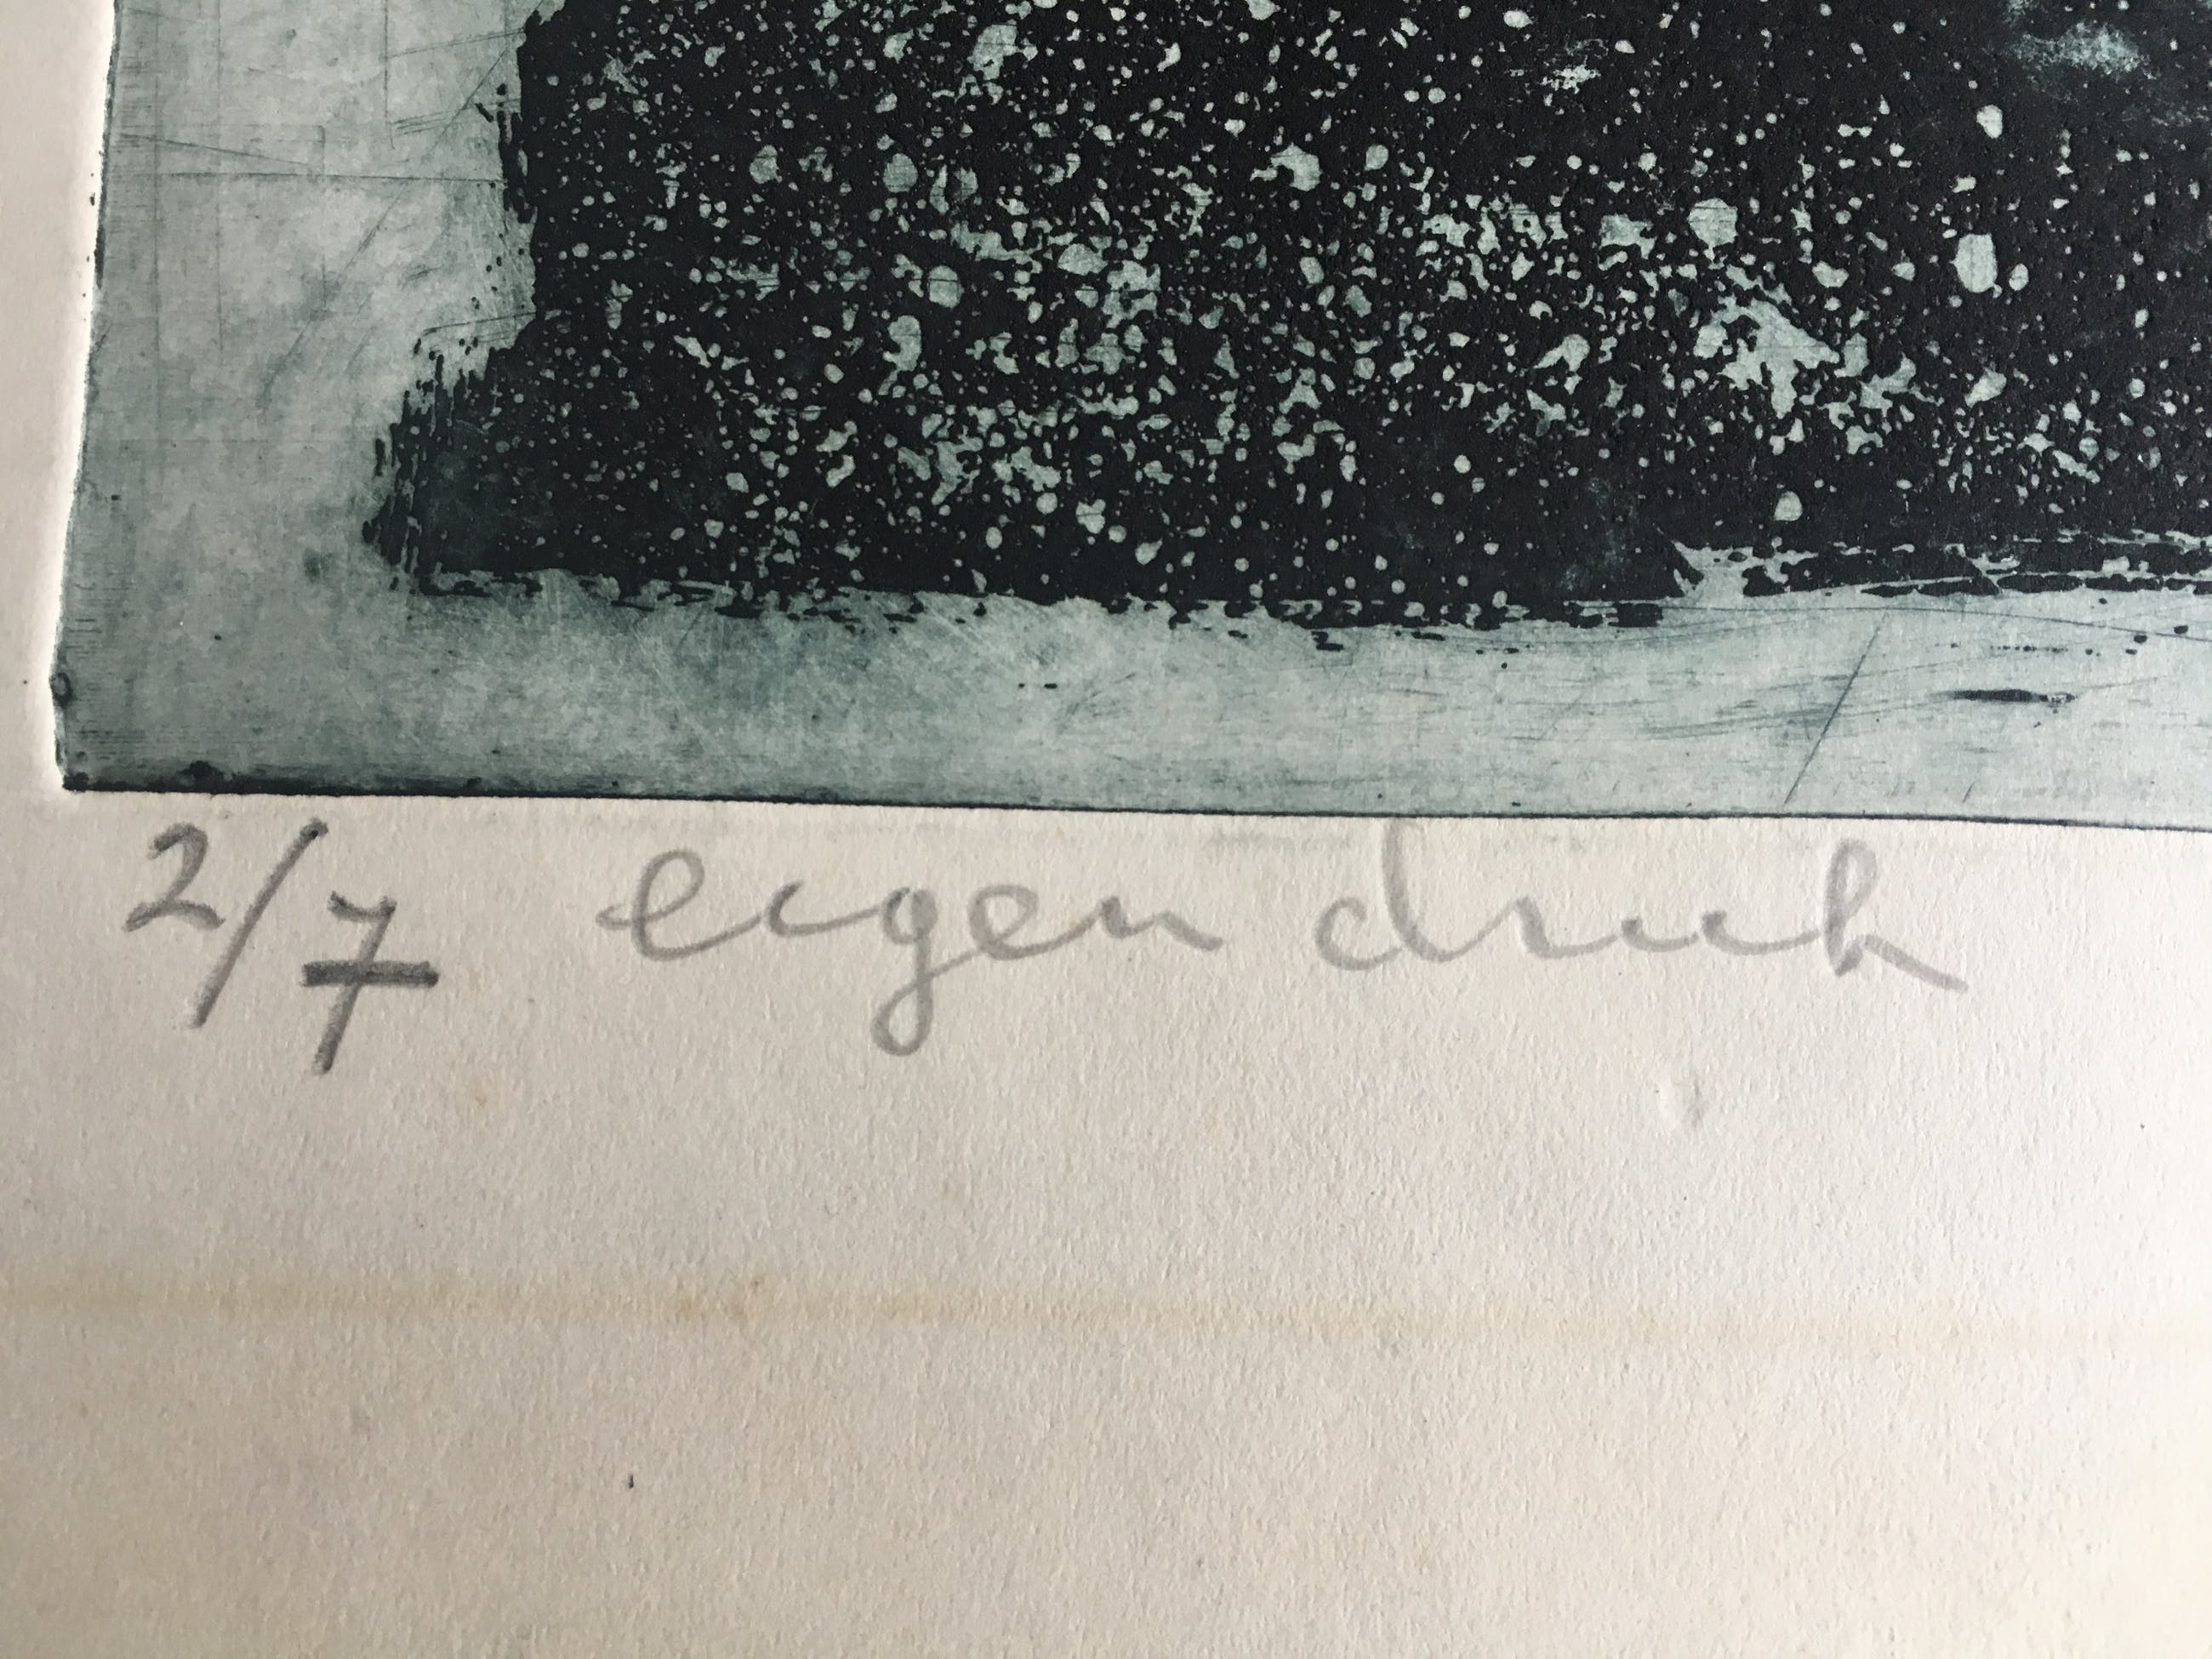 2/7 eigen druk